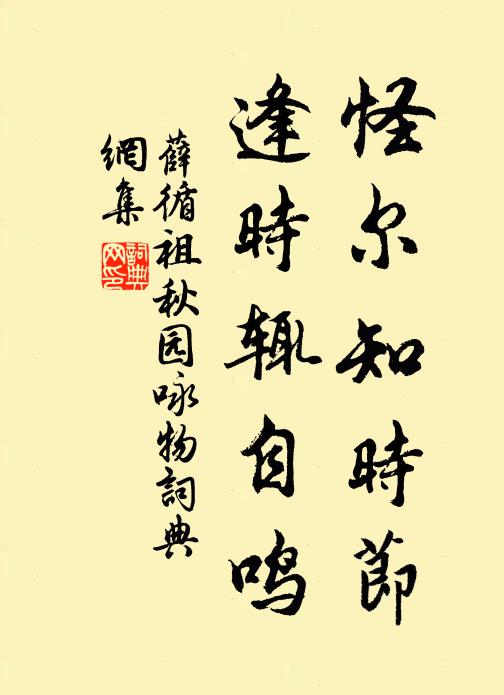 怪尔知時節
逢時辄自鸣
薛循祖秋园咏物詞典
網集
詞典
网印